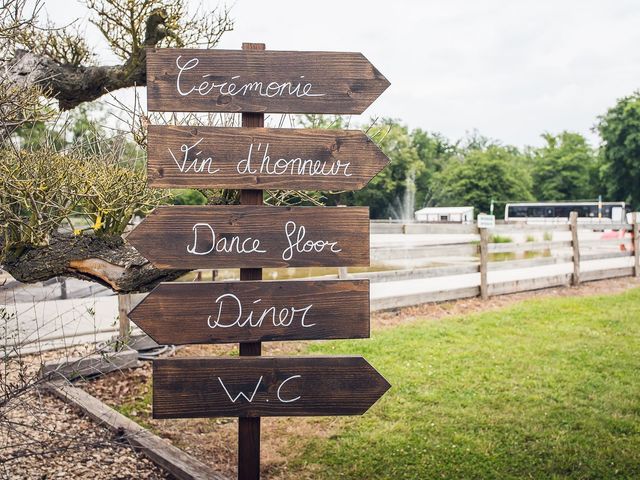 Cérémonie
Vin d'honneur
Dance floor
Dîner
W.C